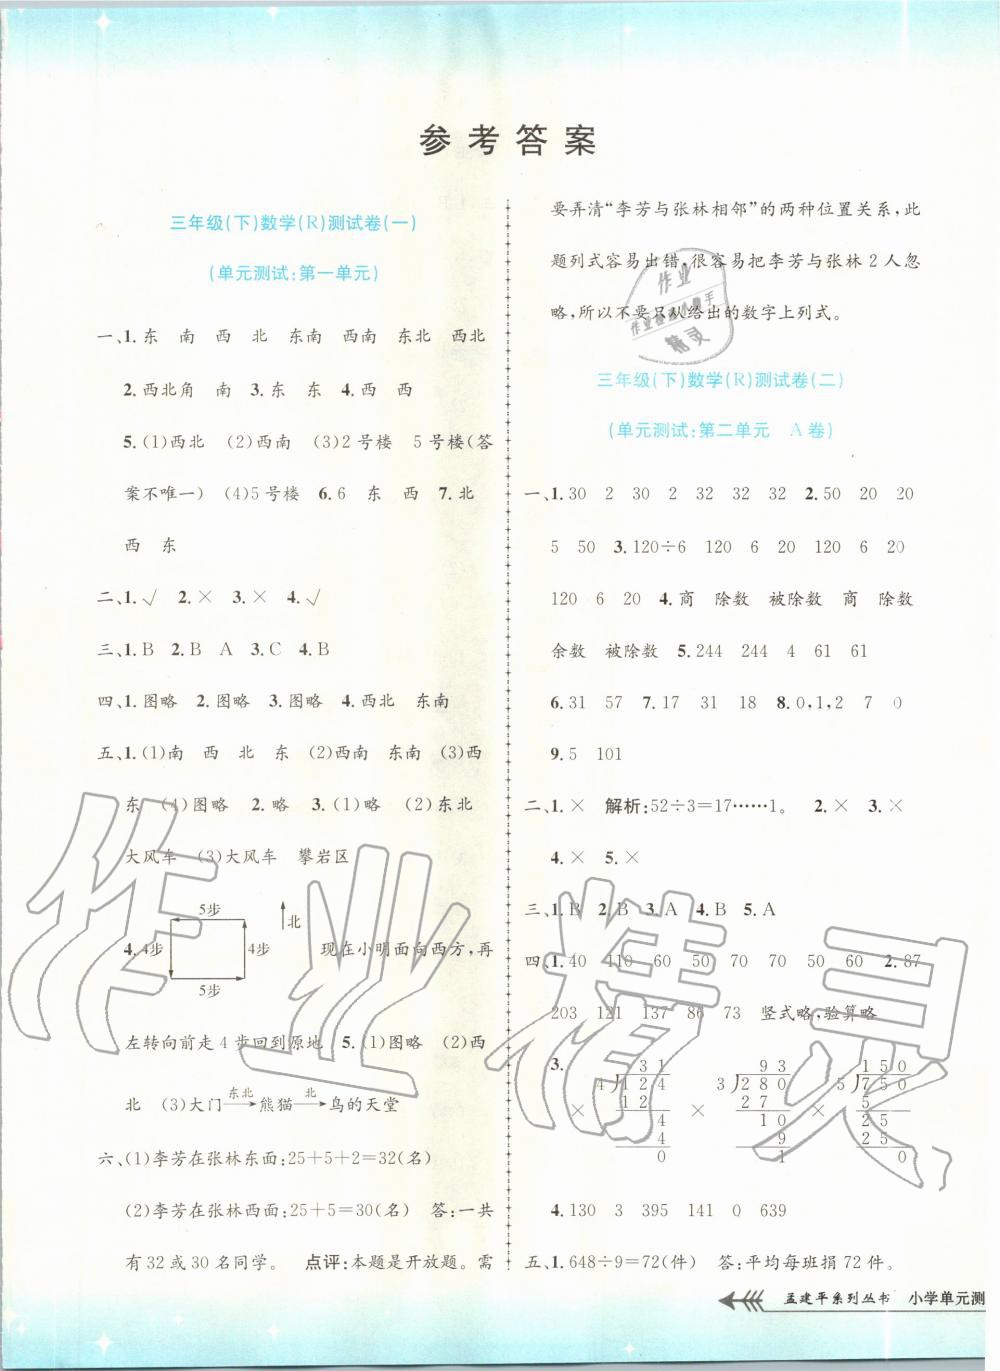 参考答案
三年级(下)数学(R)测试卷(一)
(单元测试:第一单元)
一、1.东 南 西 北 东南 西南 东北 西北
2.西北角 南 3.东 东 4.西 西
5.(1)西北 (2)西南 (3)2号楼 5号楼(答
案不唯一) (4)5号楼 6.6 东 西 7.北
西 东
二、1.√ 2.× 3.× 4.√
三、1.B 2.B A 3.C 4.B
四、1.图略 2.图略 3.图略 4.西北 东南
五、1.(1)南 西 北 东 (2)西南 东南 (3)西
东 (4)图略 2.略 3.(1)略 (2)东北
大风车 (3)大风车 攀岩区
5步
北
4. 4步 4步 现在小明面向西方,再
5步
左转向前走4步回到原地 5.(1)图略 (2)西
北 (3)大门 东北→ 熊猫 北→ 鸟的天堂
六、(1)李芳在张林东面:25+5+2=32(名)
(2)李芳在张林西面:25+5=30(名) 答:一共
有32或30名同学。 点评:本题是开放题。需
要弄清“李芳与张林相邻”的两种位置关系,此
题列式容易出错,很容易把李芳与张林2人忽
略,所以不要只从给出的数字上列式。
三年级(下)数学(R)测试卷(二)
(单元测试:第二单元 A卷)
一、1.30 2 30 2 32 32 32 2.50 20 20
5 50 3.120÷6 120 6 20 120 6 20
120 6 20 4.商 除数 被除数 商 除数
余数 被除数 5.244 244 4 61 61
6.31 57 7.17 31 18 8.0,1,2 7 0
9.5 101
二、1.× 解析:52÷3=17……1。 2.× 3.×
4.× 5.×
三、1.B 2.B 3.A 4.B 5.A
四、1.40 110 60 50 70 70 50 60 2.87
203 121 137 86 73 竖式略,验算略
3. 31 93 150
4)124 3)280 5)750
× 12 × 27 × 5
4 10 25
4 9 25
0 1 0
4.130 3 395 141 0 639
五、1.648÷9=72(件) 答:平均每班捐72件。
孟建平系列丛书 小学单元测
作业
精灵
作业精灵